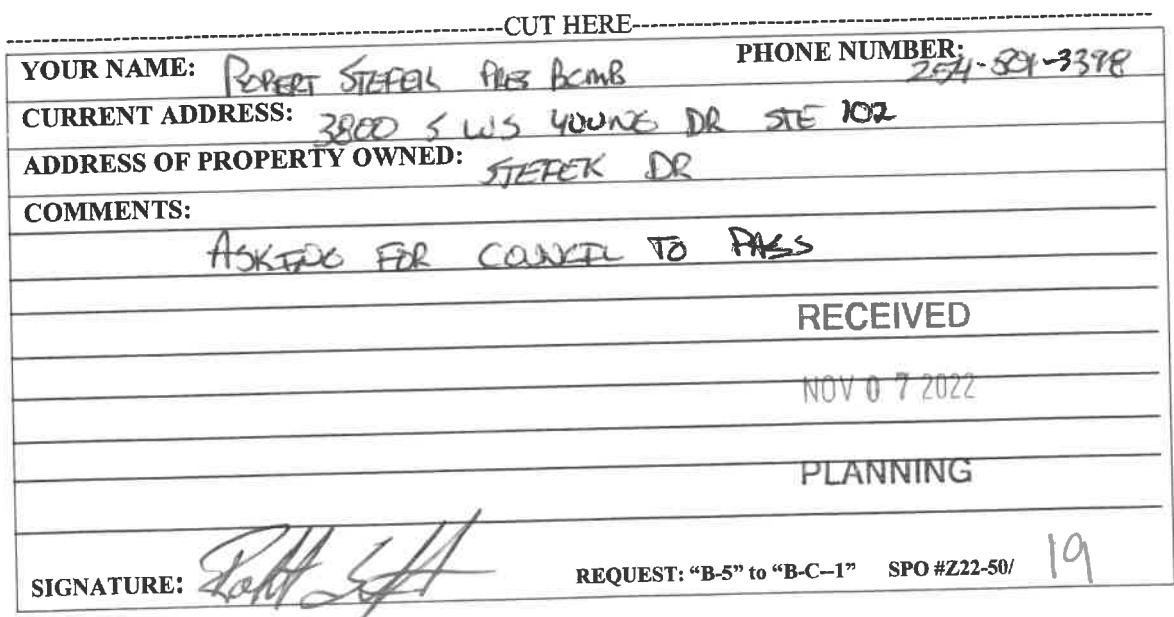 CUT HERE
YOUR NAME: ROBERT STEFEK PRES BCMB PHONE NUMBER: 254-501-3398
CURRENT ADDRESS: 3800 S WS YOUNG DR STE 102
ADDRESS OF PROPERTY OWNED: STEFEK DR
COMMENTS:
ASKING FOR COUNCIL TO PASS
RECEIVED
NOV 07 2022
PLANNING
SIGNATURE: REQUEST: "B-5" to "B-C--1" SPO #Z22-50/ 19